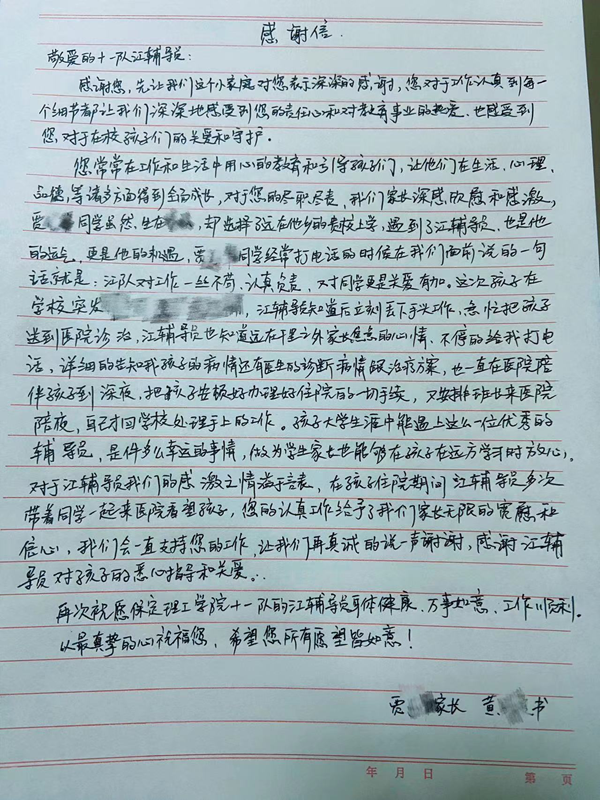 感谢信.
敬爱的十一队江辅导员:
感谢您,先让我们这个小家庭对您表示深深的感谢,您对于工作认真到每一
个细节都让我们深深地感受到您的责任心和对教育事业的热爱、也感受到
您对于在校孩子们的关爱和守护。
您常常在工作和生活中用心的教育和引导孩子们,让他们在生活、心理、
品德,等诸多方面得到全面成长,对于您的尽职尽责,我们家长深感欣慰和感激,
贾 同学虽然、生在 ,却选择了远在他乡的贵校上学,遇到了江辅导员、也是他
的运气,更是他的机遇,贾 同学经常打电话的时候在我们面前说的一句
话就是:江队对工作一丝不苟、认真负责、对同学更是关爱有加。这次孩子在
学校突发 ,江辅导员知道后立刻丢下手头工作、急忙把孩子
送到医院诊治,江辅导员也知道远在千里之外家长焦急的心情、不停的给我打电
话,详细的告知我孩子的病情还有医生的诊断病情跟治疗方案,也一直在医院陪
伴孩子到深夜,把孩子安顿好办理好住院的一切手续,又安排班长来医院
陪夜,自己才回学校处理手上的工作。孩子大学生涯中能遇上这么一位优秀的
辅导员,是件多么幸运的事情,做为学生家长也能够在孩子在远方学习时放心。
对于江辅导员我们的感激之情溢于言表,在孩子住院期间江辅导员多次
带着同学一起来医院看望孩子,您的认真工作给予了我们家长无限的宽慰和
信心,我们会一直支持您的工作,让我们再真诚的说一声谢谢,感谢江辅
导员对孩子的悉心指导和关爱。
再次祝愿保定理工学院十一队的江辅导员身体健康、万事如意、工作顺利。
以最真挚的心祝福您,希望您所有愿望皆如意!
贾 家长 黄 书
年 月 日 第 页